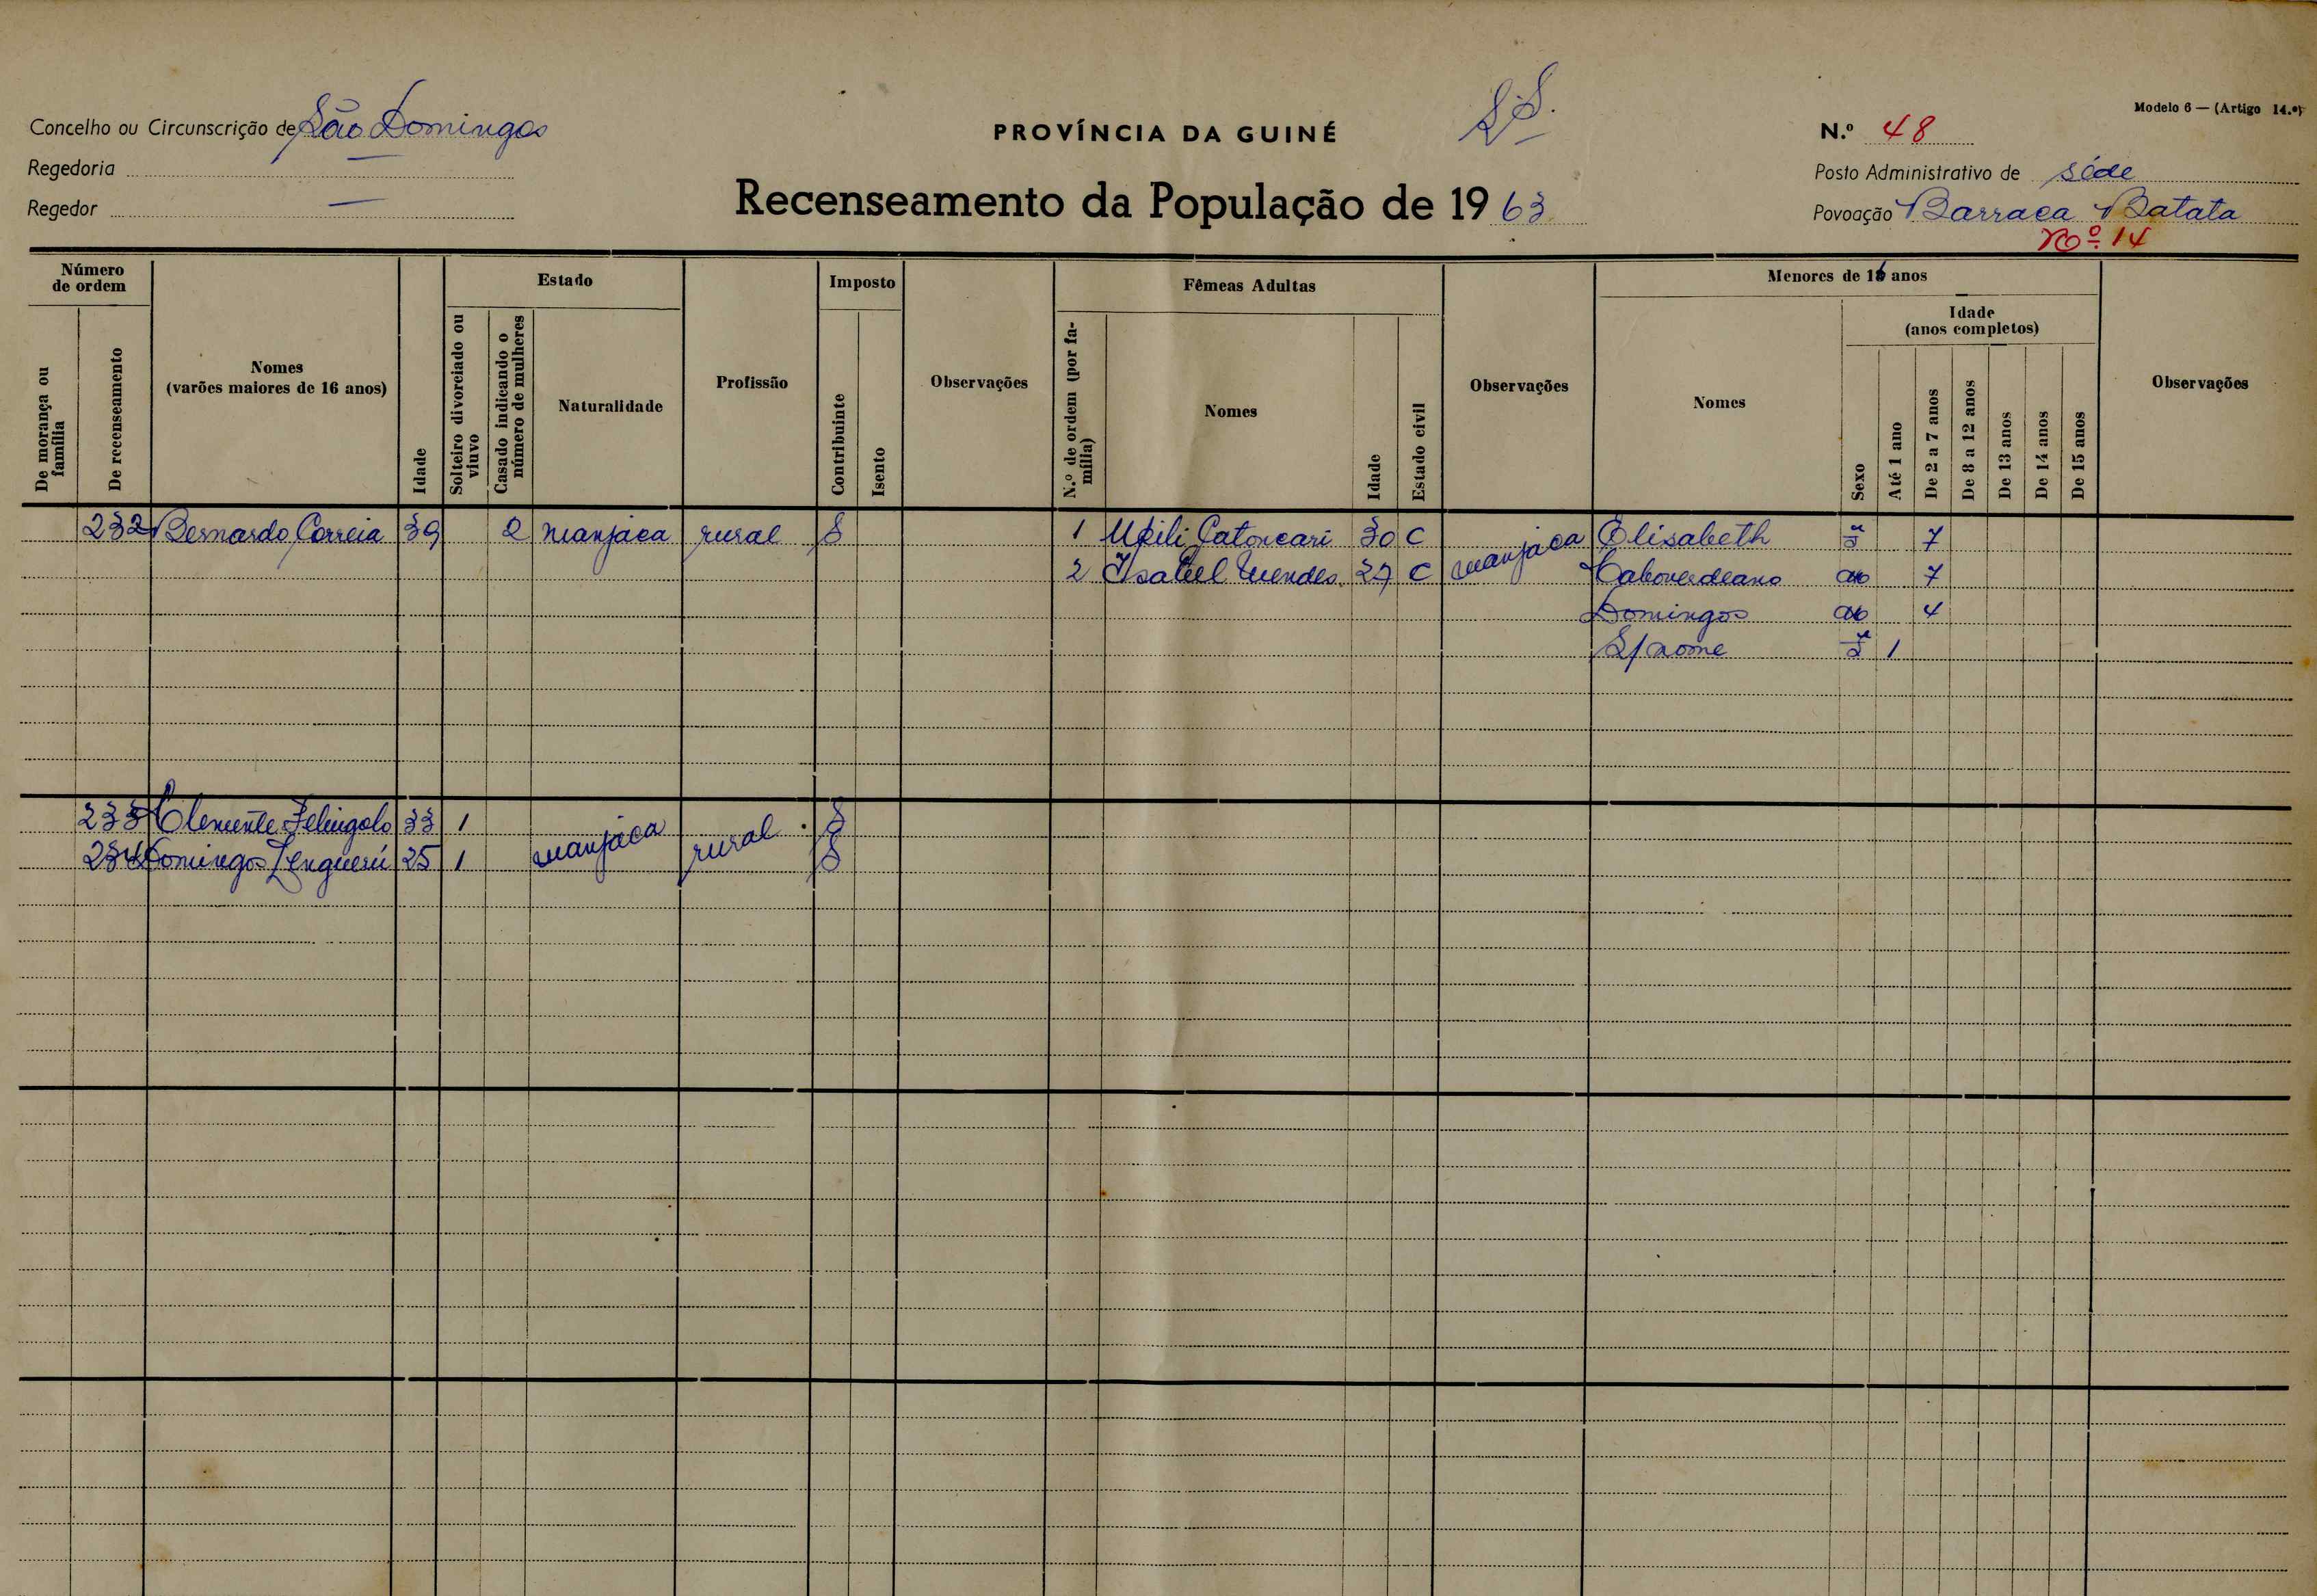 Modelo 6 — (Artigo 14.º)
Concelho ou Circunscrição de São Domingos
PROVÍNCIA DA GUINÉ
N.º 48
Regedoria —
Posto Administrativo de séde
Regedor —
Recenseamento da População de 1963
Povoação Barraca Batata
Nº 14
Número de ordem
De morança ou família
De recenseamento
Nomes
(varões maiores de 16 anos)
Idade
Estado
Solteiro divorciado ou viuvo
Casado indicando o número de mulheres
Naturalidade
Profissão
Imposto
Contribuinte
Isento
Observações
Fêmeas Adultas
N.º de ordem (por família)
Nomes
Idade
Estado civil
Observações
Menores de 16 anos
Nomes
Sexo
Idade
(anos completos)
Até 1 ano
De 2 a 7 anos
De 8 a 12 anos
De 13 anos
De 14 anos
De 15 anos
Observações
232 Bernardo Correia 39 2 manjaca rural S 1 Upili Catoncari 30 C manjaca Elisabeth 7
2 Isabel Mendes 27 C Caboverdeano 7
Domingos 4
S/nome 1
233 Clemente 33 1 manjaca rural S
234 Domingos 25 1 S